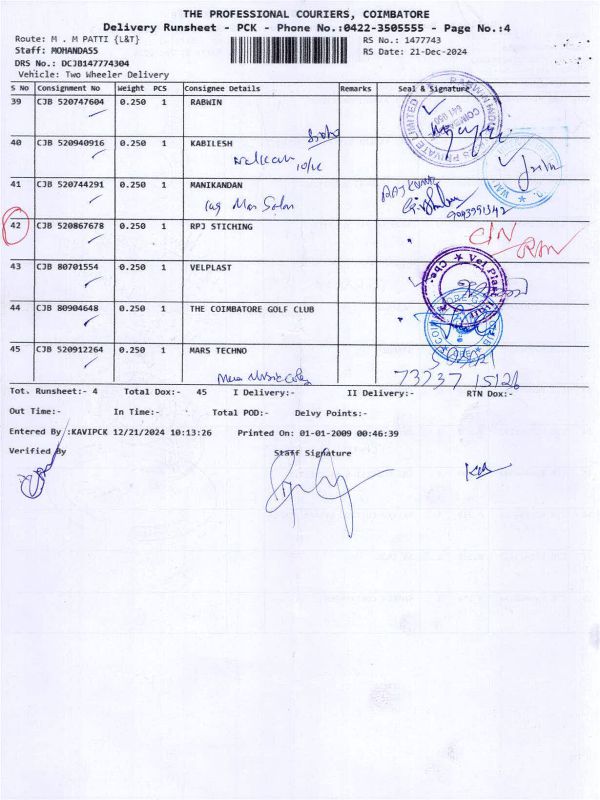 THE PROFESSIONAL COURIERS, COIMBATORE
Delivery Runsheet - PCK - Phone No.:0422-3505555 - Page No.:4
Route: M . M PATTI {L&T}
RS No.: 1477743
Staff: MOHANDASS
RS Date: 21-Dec-2024
DRS No.: DCJB147774304
Vehicle: Two Wheeler Delivery
S No Consignment No Weight PCS Consignee Details Remarks Seal & Signature
39 CJB 520747604 0.250 1 RABWIN
40 CJB 520940916 0.250 1 KABILESH
41 CJB 520744291 0.250 1 MANIKANDAN
RAJKUMAR
42 CJB 520867678 0.250 1 RPJ STICHING
43 CJB 80701554 0.250 1 VELPLAST
44 CJB 80904648 0.250 1 THE COIMBATORE GOLF CLUB
45 CJB 520912264 0.250 1 MARS TECHNO
73737 15126
Tot. Runsheet:- 4 Total Dox:- 45 I Delivery:- II Delivery:- RTN Dox:-
Out Time:- In Time:- Total POD:- Delvy Points:-
Entered By :KAVIPCK 12/21/2024 10:13:26 Printed On: 01-01-2009 00:46:39
Verified By Staff Signature